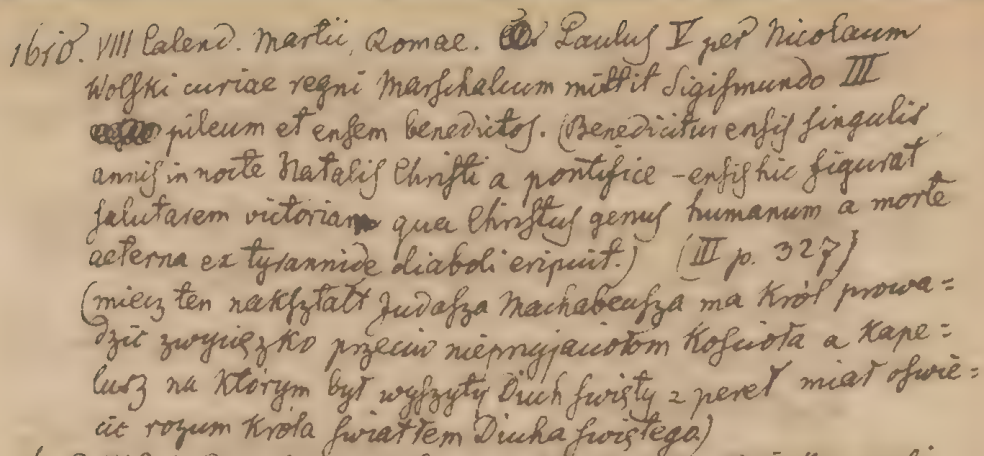 1610. VIII Calend. Martii, Romae. Paulus V per Nicolaum
Wolski curiae regni Marschalcum mittit Sigismundo III
pileum et ensem benedictos. (Benedicitur ensis singulis
annis in nocte Natalis Christi a pontifice – ensis hic figurat
salutarem victoriam qua Christus genus humanum a morte
aeterna ex tyrannide diaboli eripuit.) (III p. 327)
(miecz ten nakształt Judasza Machabeusza ma Król prowa=
dzić zwycięzko przeciw nieprzyjaciołom Kościoła a Kape=
lusz na którym był wyszyty Duch święty z pereł miał oświe=
cić rozum Króla światłem Ducha świętego)